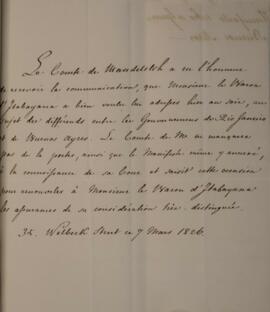 Le Comte de Mandelsloh a eu l'honneur
de recevoir la communication, que Monsieur le Baron
d'Itabayana a bien voulu lui adresser hier au soir, au
sujet des différends entre les Gouvernemens de Rio Janeiro
et de Buenos Ayres. Le Comte de M. ne manquera
pas de la porter, ainsi que le Manifeste même y annexé,
à la connoissance de sa Cour et saisit cette occasion
pour renouveler à Monsieur le Baron d'Itabayana
les assurances de sa considération très distinguée.
34. Welbeck Street ce 7 Mars 1826.